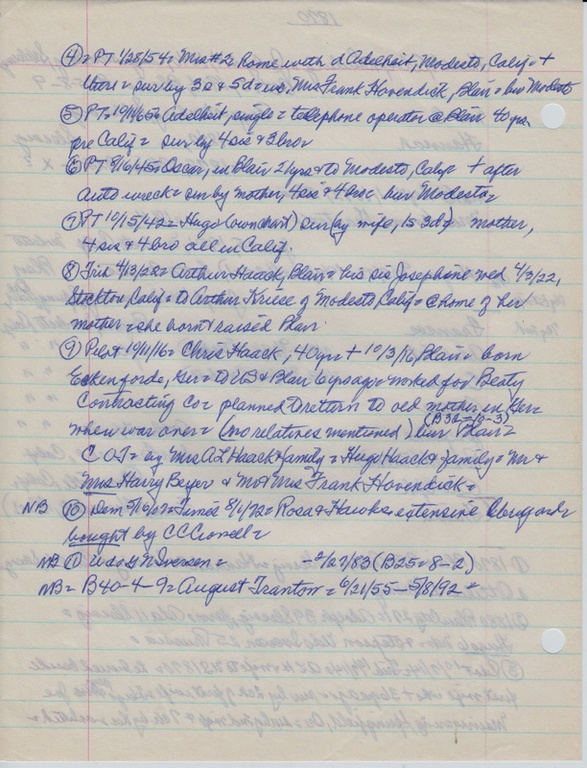 ④ = PT 1/28/54 = Mrs #2 home with d Adelheit, Modesto, Calif = +
there = sur by 3s & 5d = inc, Mrs Frank Hovendick, Blair = bur Modesto
⑤ PT = 10/1/65 = Adelheit, single = telephone operator @ Blair 40 yrs
pre Calif = sur by 4 sis & 3 bro
⑥ PT 8/16/45 = Oscar, in Blair 21 yrs & to Modesto, Calif = + after
auto wreck = sur by mother, 4 sis & 4 bro bur Modesto =
⑦ PT 10/15/42 = Hugo (own chart) sur by wife, 1s 3d & mother,
4 sis & 4 bro all in Calif.
⑧ Trib 4/13/22 = Arthur Haack, Blair = his sis Josephine wed 4/3/22,
Stockton, Calif = to Arthur Kriese of Modesto, Calif = @ home of her
mother = she born & raised Blair
⑨ Pilot 10/11/16 = Chris Haack, 40 yrs + 10/3/16, Blair = born
Eckenforde, Ger = to US & Blair 6 yrs ago = worked for Beaty
Contracting Co = planned to return to old mother in Ger =
when war over = (no relatives mentioned) bur Blair =
(B32-10-3)
C O T = by Mrs A L Haack & family = Hugo Haack & family = Mr &
Mrs Harry Beyer & Mr & Mrs Frank Hovendick =
NB ⑩ Dem = Times 8/1/72 = Rosa & Hawks extensive
bought by CC Crowell =
NB ⑪ Udo G N Iversen = - 2/27/83 (B25-8-2)
NB = B40-4-9 = August Tranton = 6/21/55 - 5/8/92 =